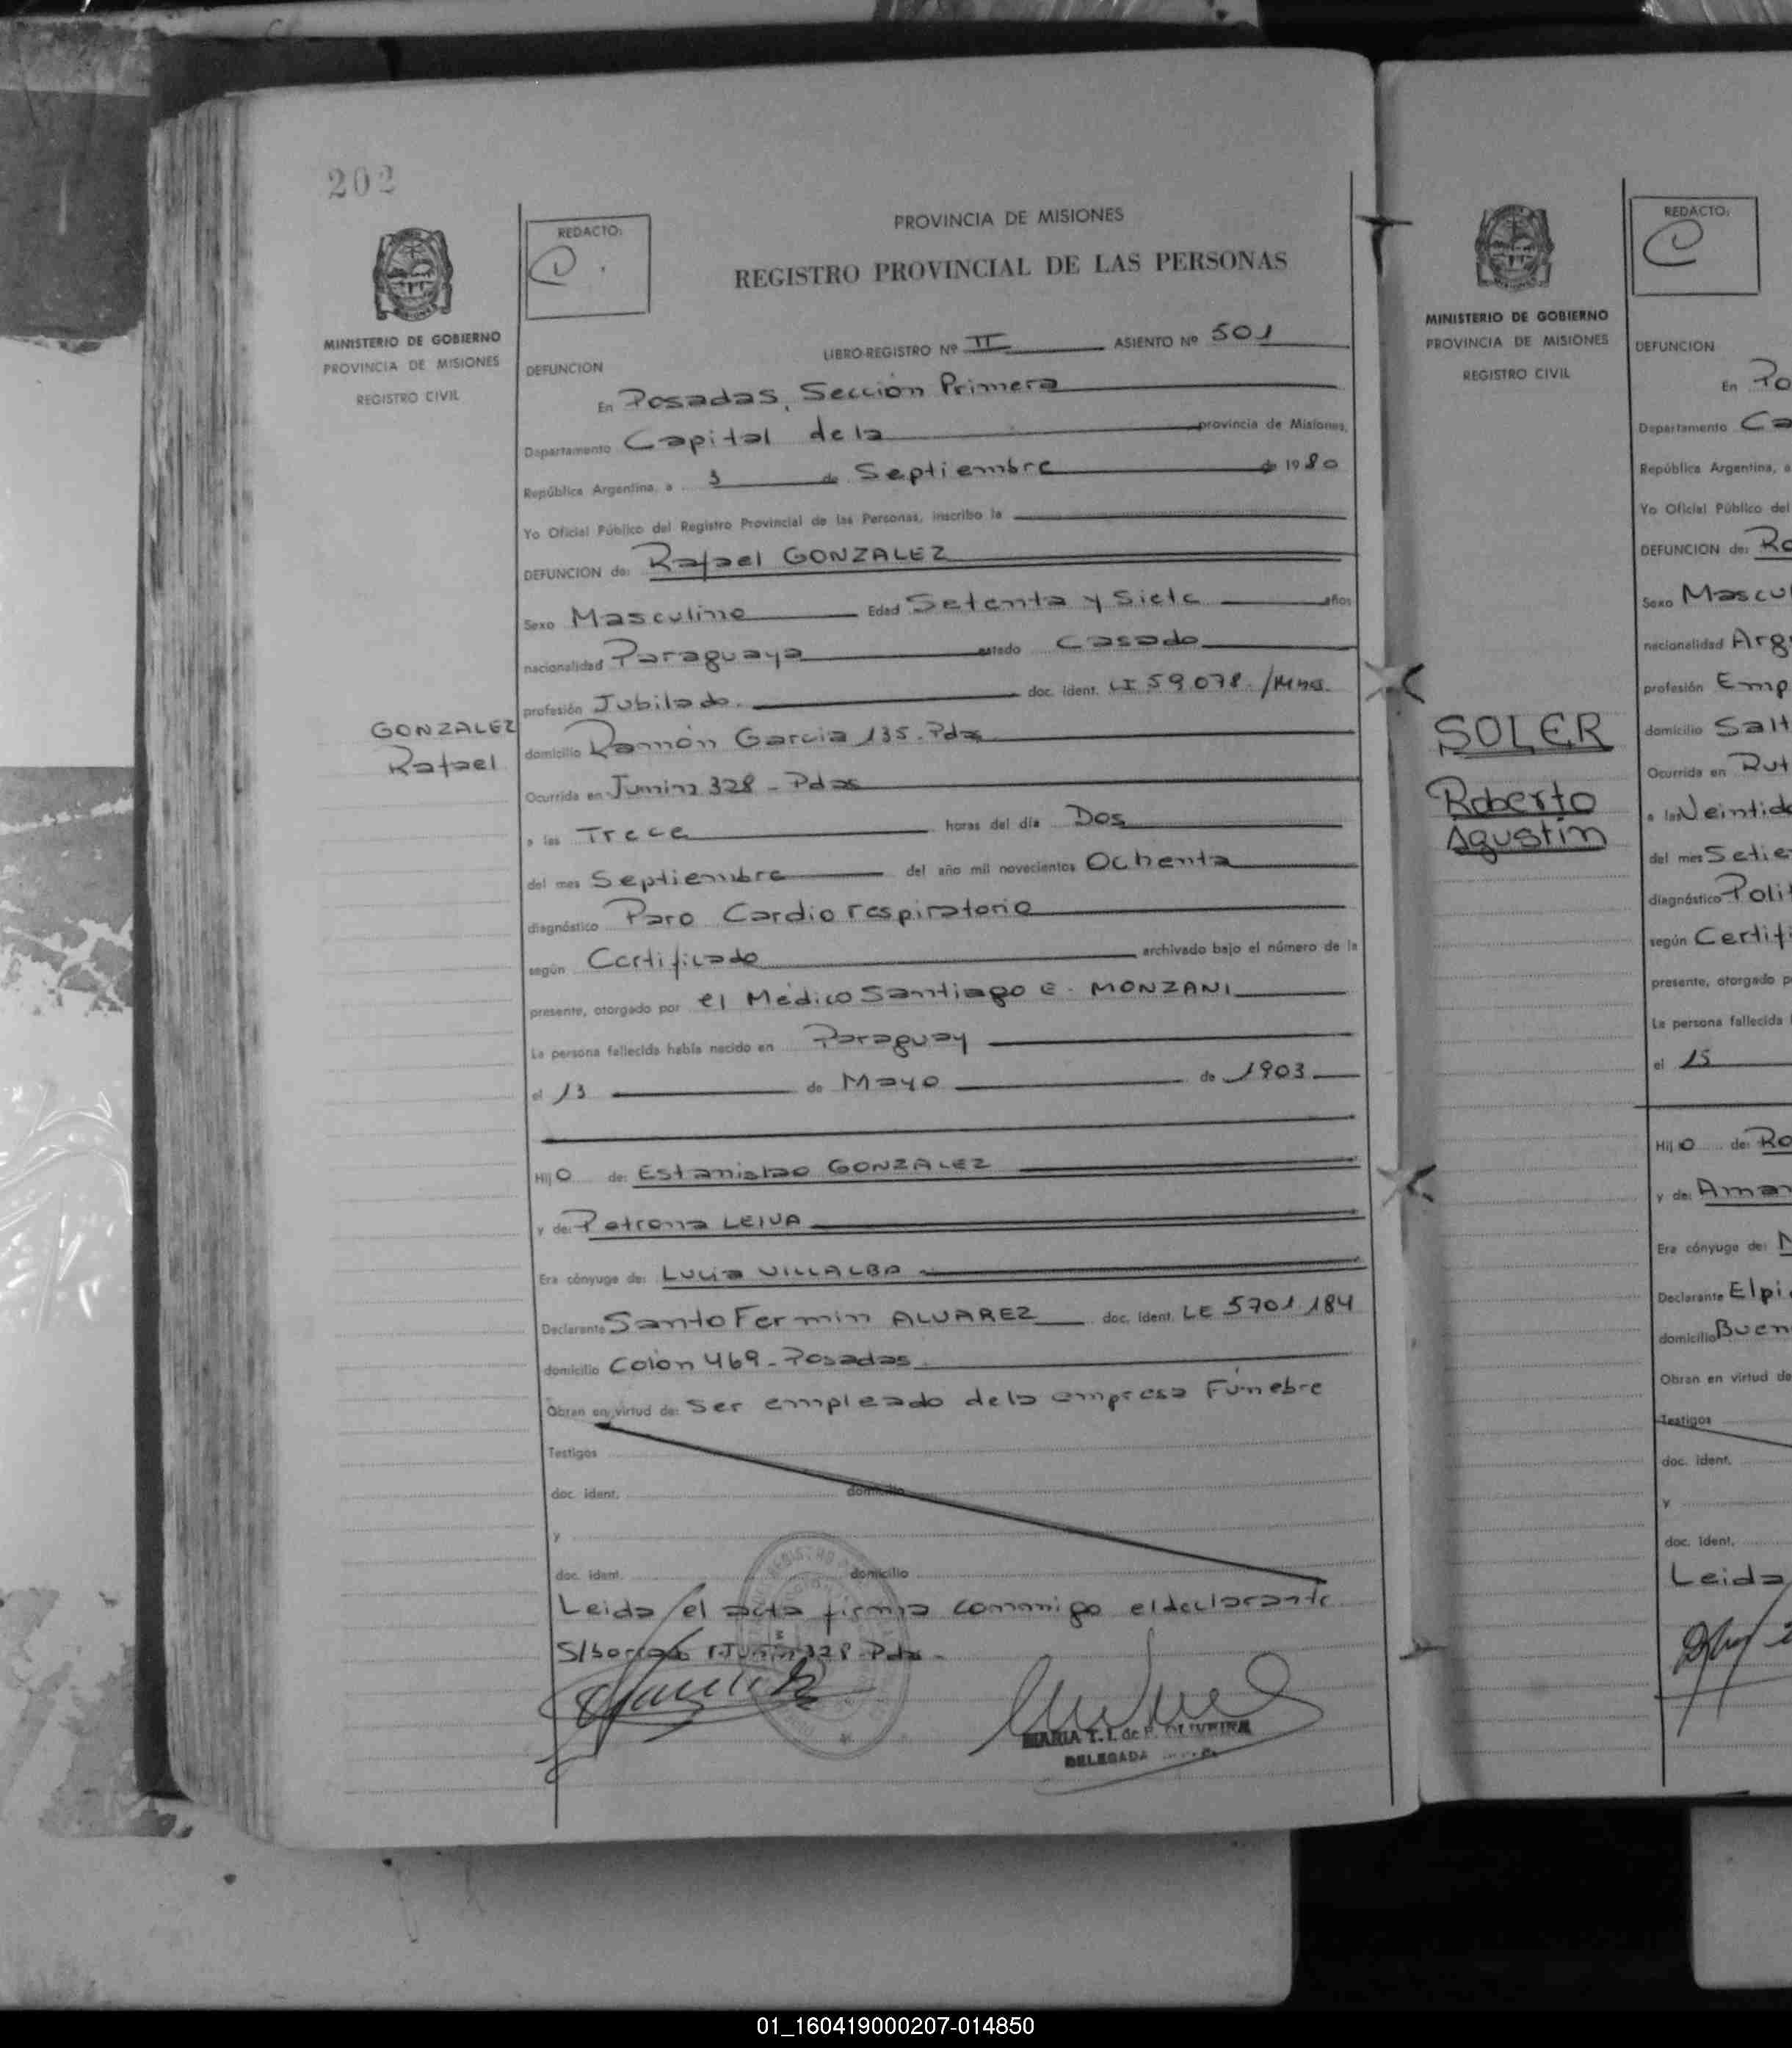 202
REDACTO:
C.
PROVINCIA DE MISIONES
REGISTRO PROVINCIAL DE LAS PERSONAS
MINISTERIO DE GOBIERNO
PROVINCIA DE MISIONES
REGISTRO CIVIL
LIBRO-REGISTRO Nº II ASIENTO Nº 501
DEFUNCION
En Posadas, Sección Primera
Departamento Capital de la provincia de Misiones,
República Argentina, a 3 de Septiembre de 1980
Yo Oficial Público del Registro Provincial de las Personas, inscribo la
DEFUNCION de: Rafael GONZALEZ
Sexo Masculino Edad Setenta y Siete años
nacionalidad Paraguaya estado Casado
profesión Jubilado. doc. ident. LI 59.078
GONZALEZ
Rafael
domicilio Ramón Garcia 135-Pdas
Ocurrida en Junin 328 - Pdas
a las Trece horas del día Dos
del mes Septiembre del año mil novecientos Ochenta
diagnóstico Paro Cardio respiratorio
según Certificado archivado bajo el número de la
presente, otorgado por el Médico Santiago E. MONZANI
La persona fallecida había nacido en Paraguay
el 13 de Mayo de 1903
Hij o de: Estanislao GONZALEZ
y de: Petrona LEIVA
Era cónyuge de: Lucia VILLALBA
Declarante Santo Fermin ALVAREZ doc. ident. LE 5701.184
domicilio Colón 469-Posadas
Obran en virtud de: Ser empleado de la empresa Fúnebre
Testigos
doc. ident. domicilio
y
doc. ident. domicilio
Leida el acta firma conmigo el declarante
S/borrado Junin 328 Pdas-
MARIA T. I. de F. OLIVEIRA
DELEGADA
REDACTO:
C
MINISTERIO DE GOBIERNO
PROVINCIA DE MISIONES
REGISTRO CIVIL
DEFUNCION
En Po
Departamento Ca
República Argentina, a
Yo Oficial Público del
DEFUNCION de: Ro
Sexo Mascul
nacionalidad Arg
profesión Emp
SOLER
Roberto
Agustin
domicilio Salt
Ocurrida en Rut
a las Veintido
del mes Setie
diagnóstico Polit
según Certifi
presente, otorgado p
La persona fallecida
el 15
Hij o de: Ro
y de: Aman
Era cónyuge de: N
Declarante Elpi
domicilio Buen
Obran en virtud de
Testigos
doc. ident.
y
doc. ident.
Leida
01_160419000207-014850